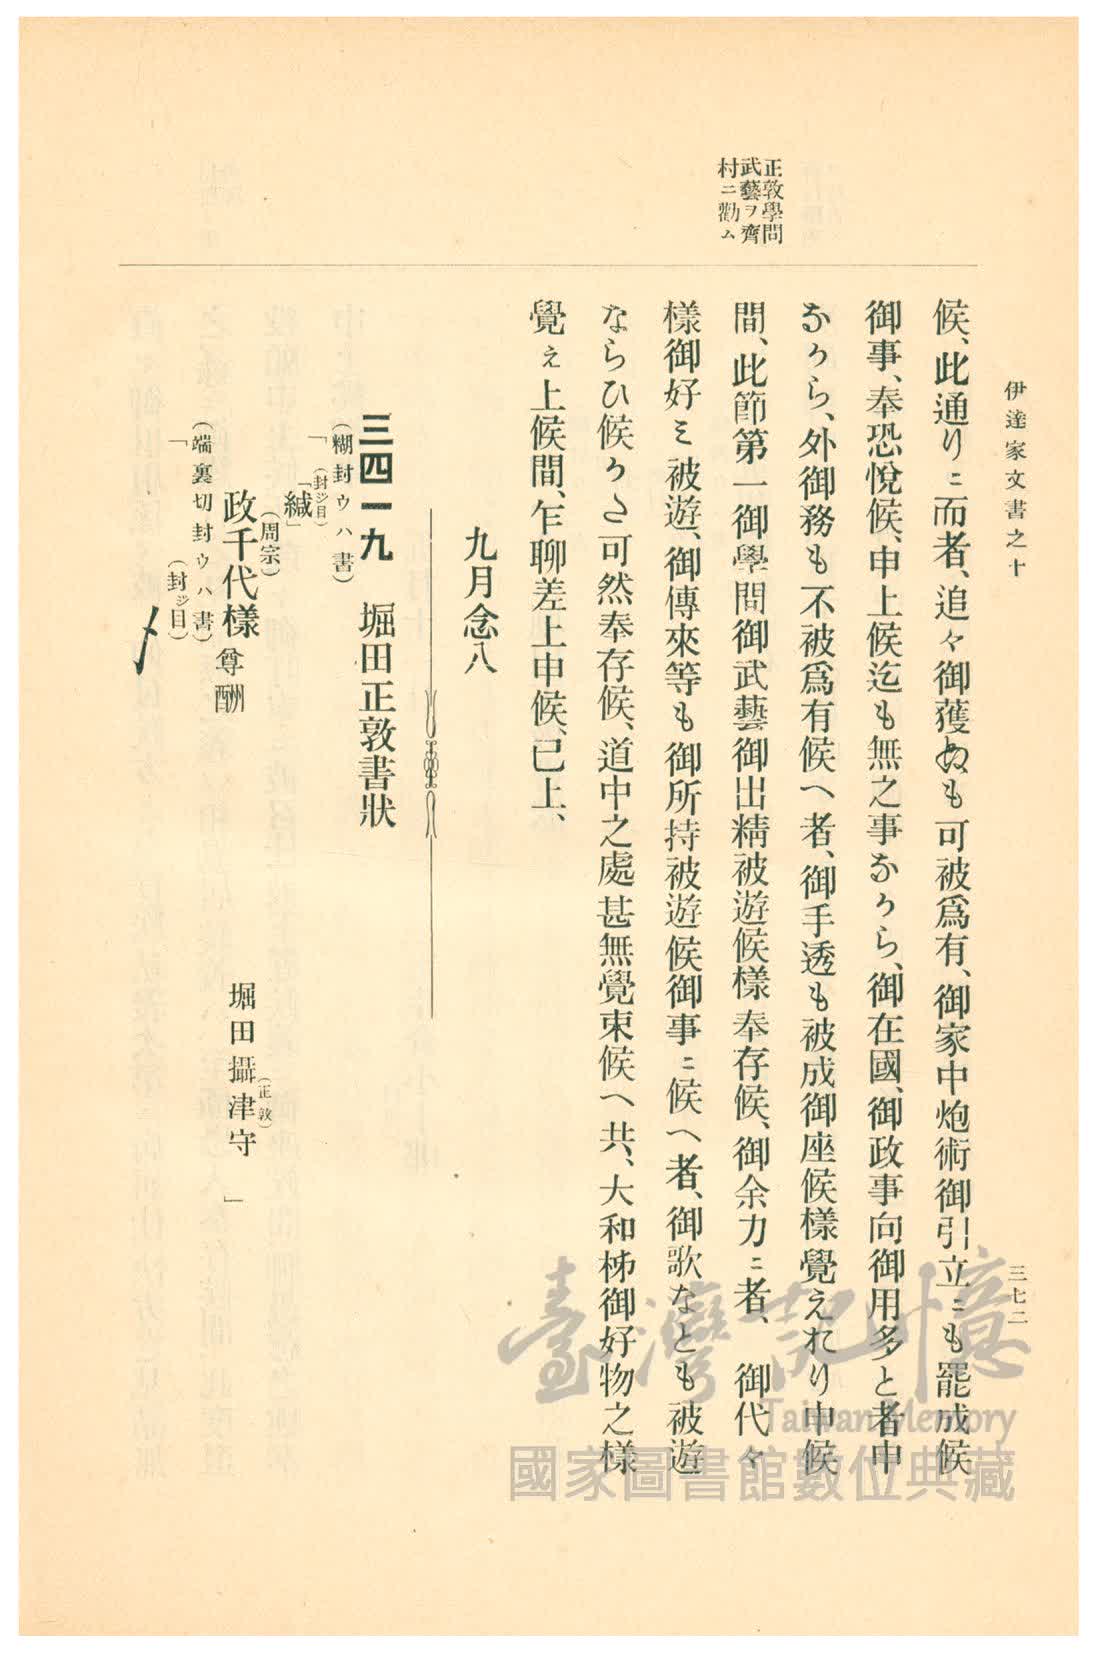 伊達家文書之十
三七二
正敦學問
武藝ヲ齊
村ニ勸ム
候、此通りニ而者、追々御獲ぬも可被爲有、御家中炮術御引立ニも罷成候
御事、奉恐悅候、申上候迄も無之事ながら、御在國、御政事向御用多と者申
ながら、外御務も不被爲有候へ者、御手透も被成御座候樣覺えれり申候
間、此節第一御學問御武藝御出精被遊候樣奉存候、御余力ニ者、　御代々
樣御好ミ被遊、御傳來等も御所持被遊候御事ニ候へ者、御歌なとも被遊
ならひ候かた可然奉存候、道中之處甚無覺束候へ共、大和柹御好物之樣
覺ぇ上候間、乍聊差上申候、已上、
九月念八
三四一九　堀田正敦書狀
（糊封ウハ書）
「（封ジ目）
「緘」
（周宗）
政千代樣尊酬
堀田攝津守　」
（正敦）
（端裏切封ウハ書）
「（封ジ目）
〆
臺灣記憶
Taiwan Memory
國家圖書館數位典藏